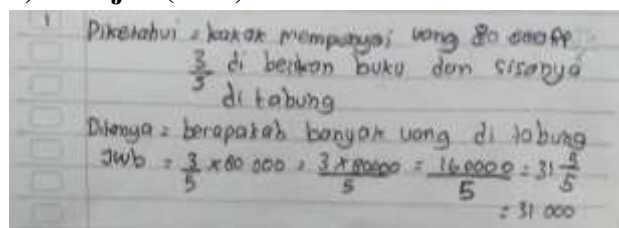 1 Diketahui = kakak mempunyai uang 80 000 Rp
3/5 di berikan buku dan sisanya
di tabung
Ditanya = berapakah banyak uang di tabung
Jwb = 3/5 x 80 000 = 3 x 80000/5 = 160000/5 = 31 3/5
= 31 000